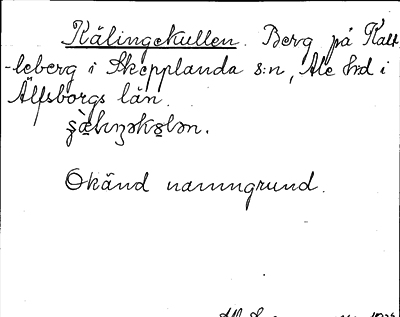 Kälingekullen. Berg på Katt
-leberg i Skepplanda s:n, Ale hrd i
Älfsborgs län.
Okänd namngrund.